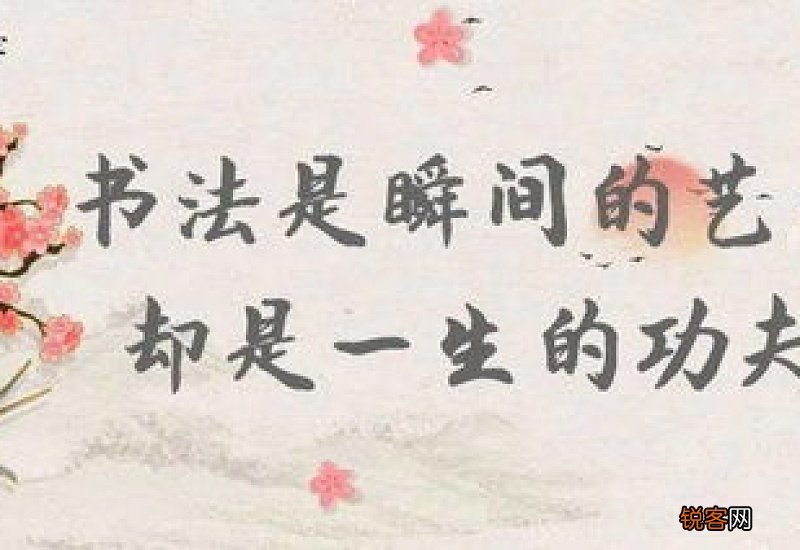 书法是瞬间的艺
却是一生的功夫
锐客网